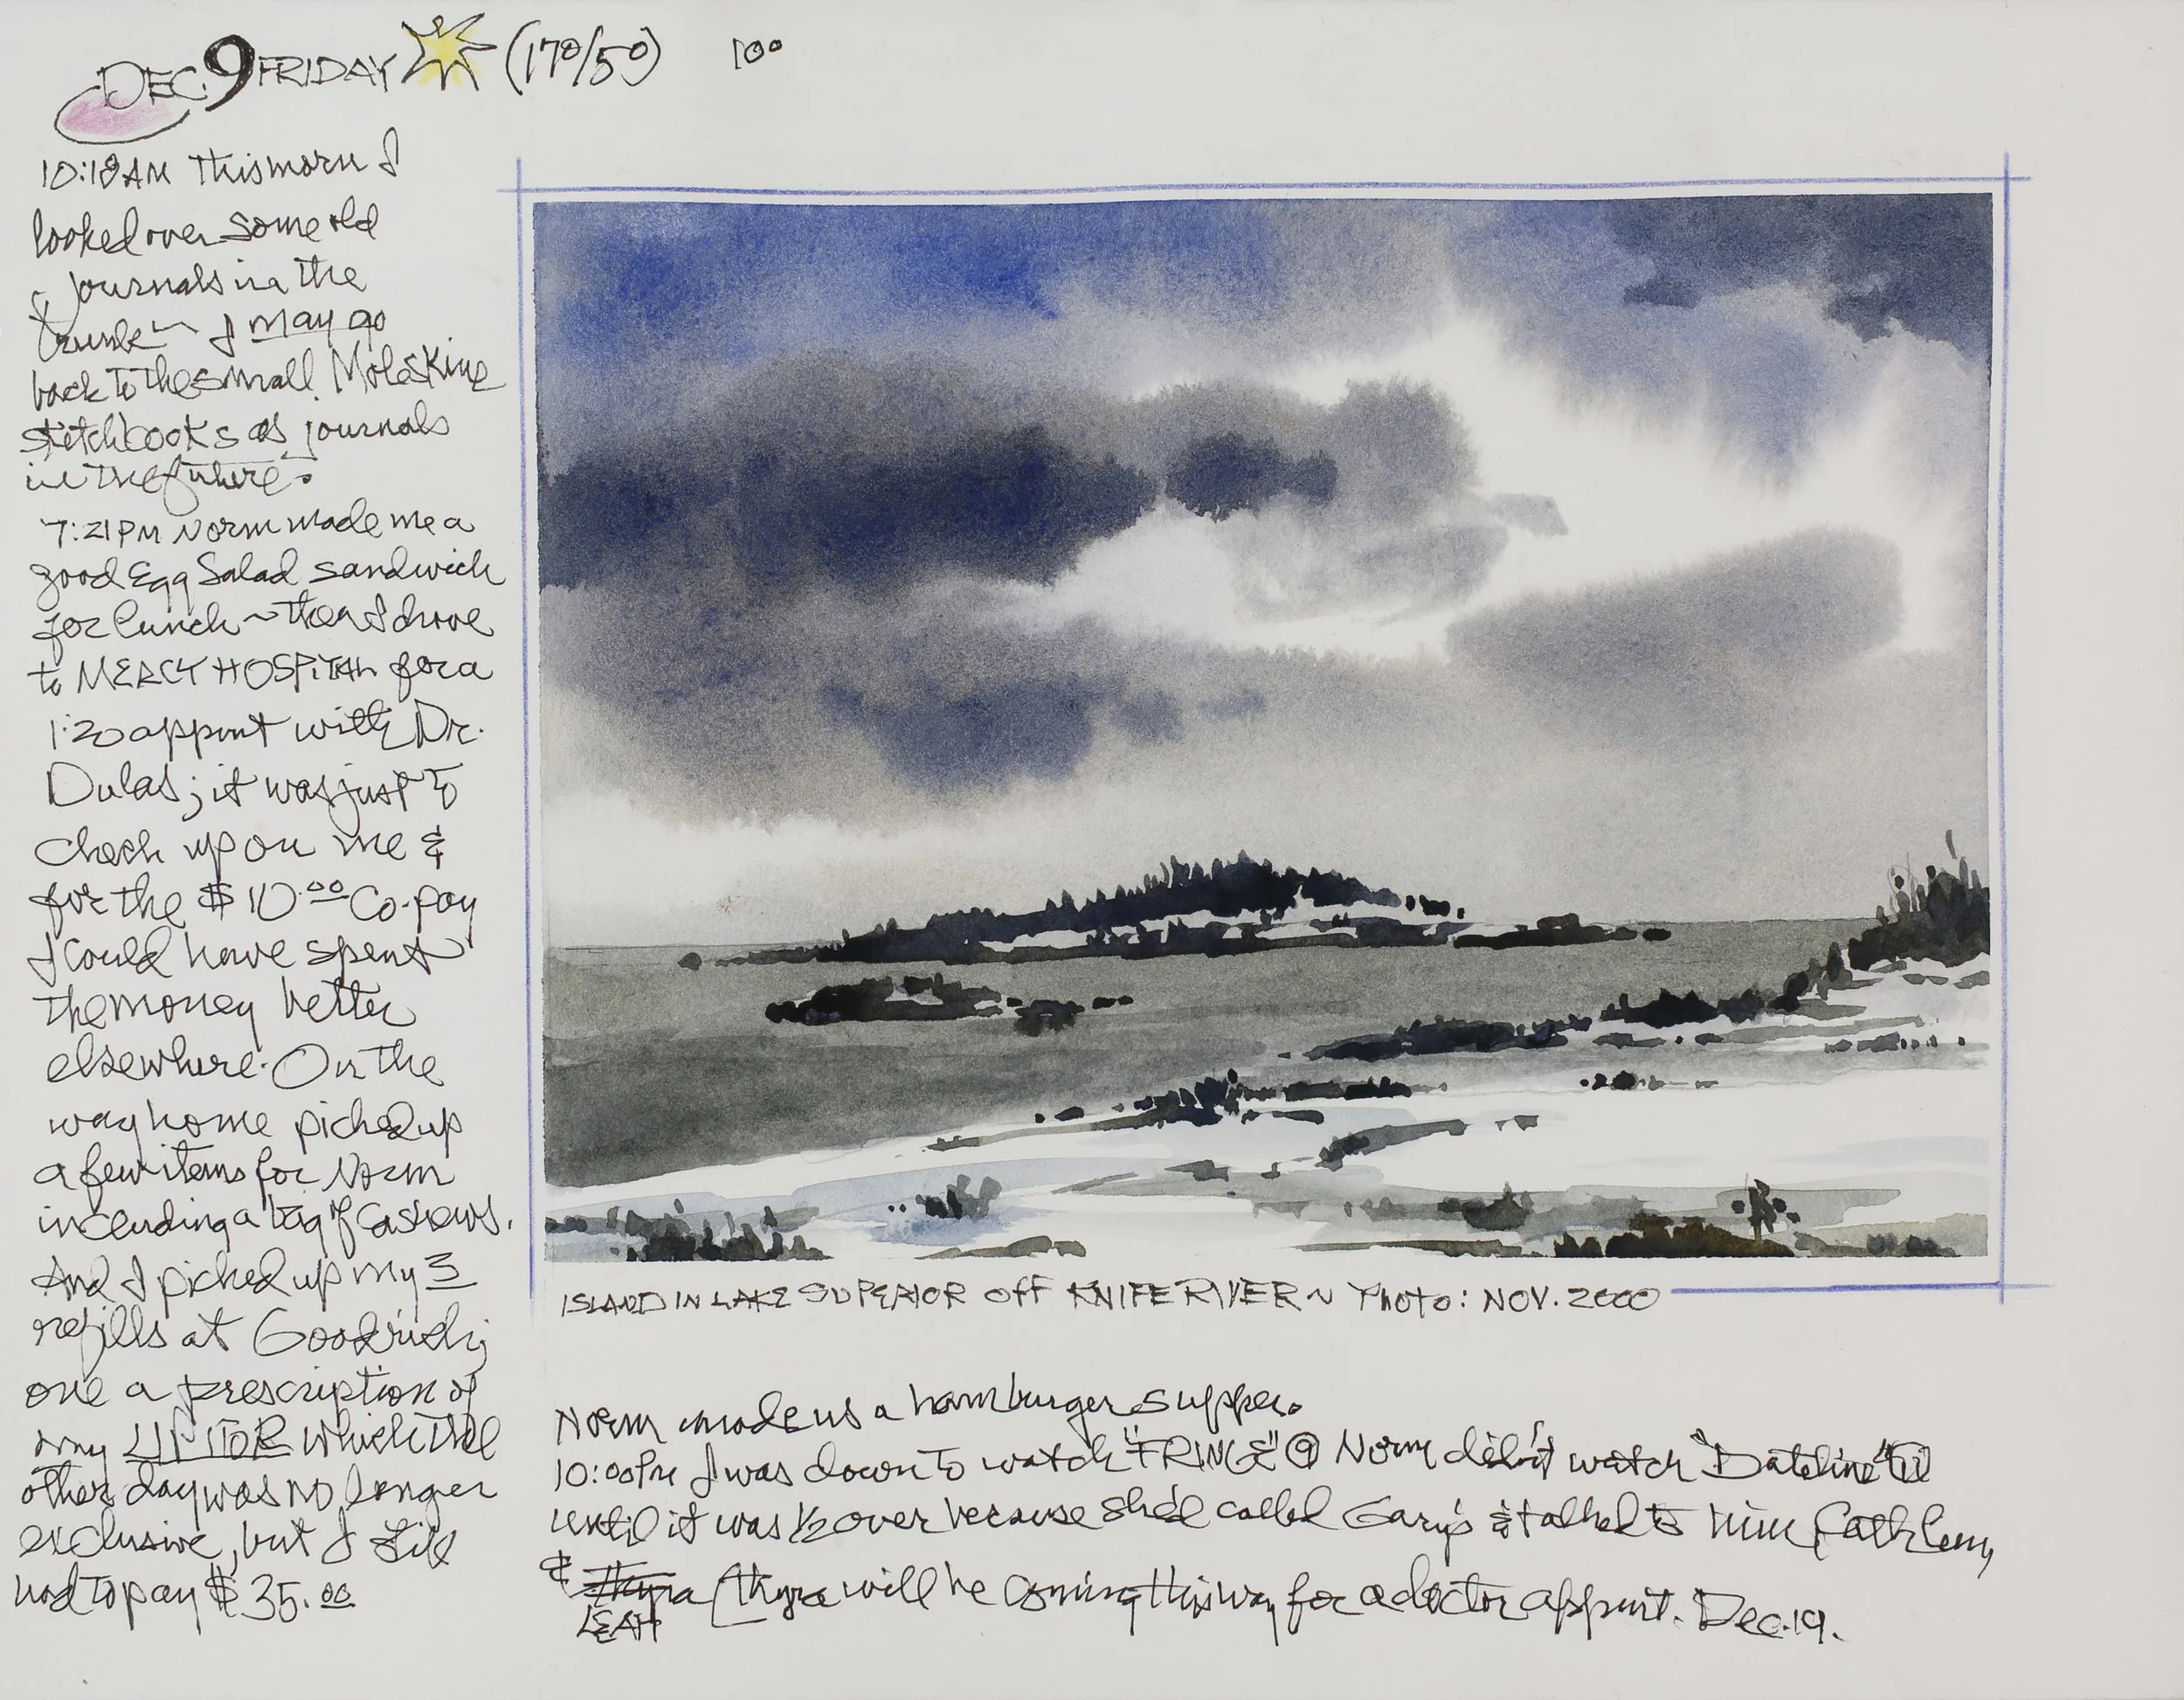 DEC. 9 FRIDAY (17°/5°) 10°
10:18 AM This morn I
looked over some old
journals in the
trunk ~ I may go
back to the small Moleskine
sketchbooks as journals
in the future.
7:21 PM Norm made me a
good Egg Salad sandwich
for lunch ~ then I drove
to MERCY HOSPITAL for a
1:20 appmt with Dr.
Dulas; it was just to
check up on me &
for the $10.00 Co-pay
I could have spent
the money better
elsewhere. On the
way home picked up
a few items for Norm
including a bag of Cashews.
And I picked up my 3
refills at Goodrich;
one a prescription of
my LIPITOR which the
other day was no longer
exclusive, but I still
had to pay $35.00
ISLAND IN LAKE SUPERIOR OFF KNIFE RIVER ~ PHOTO: NOV. 2000
Norm made us a hamburger supper.
10:00 PM I was down to watch "FRINGE" @ 9 Norm didn't watch "Dateline"
until it was 1/2 over because she'd called Gary's & talked to him, Cathleen,
& Thyra [Thyra will be coming this way for a doctor appmt. Dec. 19.
LEAH